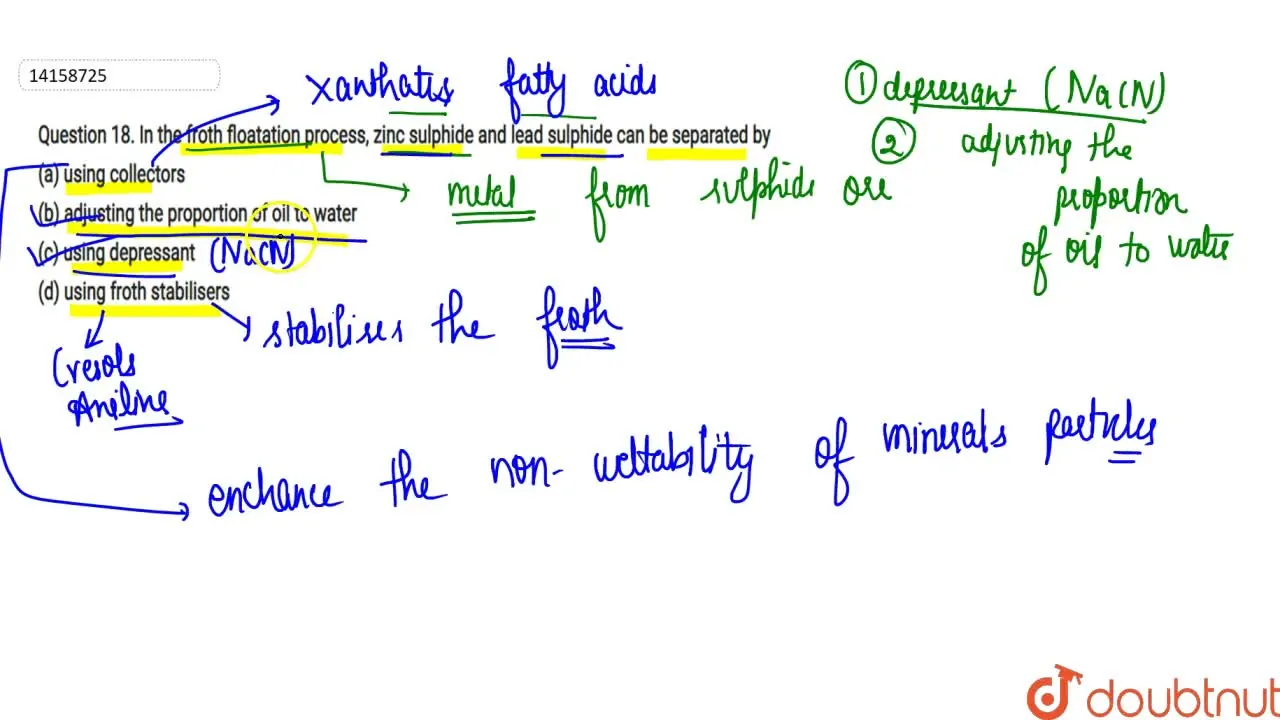 14158725
Xanthates fatty acids
① depressant (NaCN)
② adjusting the
proportion
of oil to water
Question 18. In the froth floatation process, zinc sulphide and lead sulphide can be separated by
(a) using collectors
metal from sulphide ore
(b) adjusting the proportion of oil to water
(c) using depressant (NaCN)
(d) using froth stabilisers
stabilises the froth
Cresols
Aniline
enchance the non-wettability of minerals particles
doubtnut